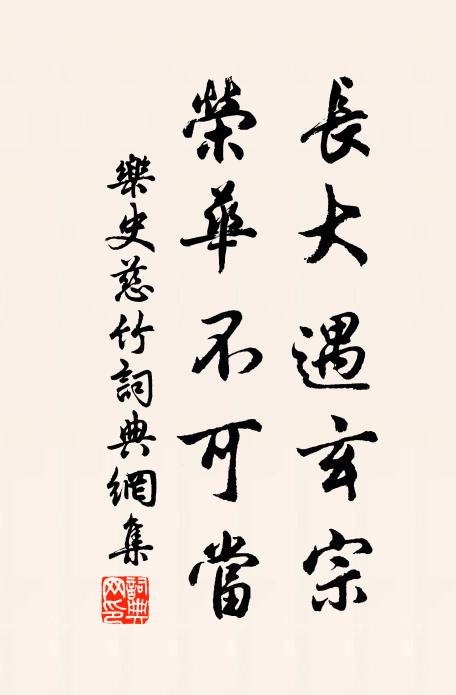 長大遇玄宗
榮華不可當
樂史慈竹詞典網集
詞典網印